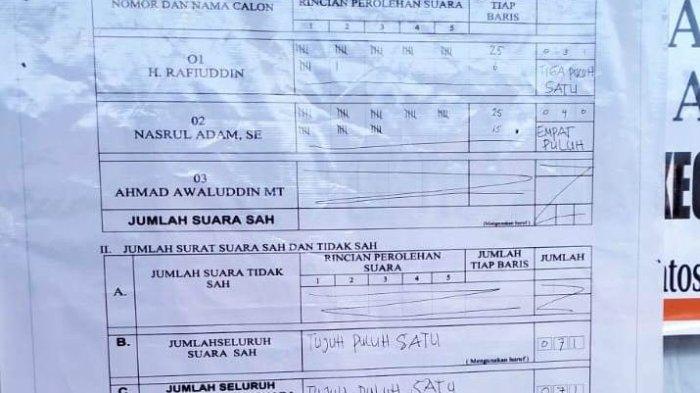 NOMOR DAN NAMA CALON
RINCIAN PEROLEHAN SUARA
TIAP
BARIS
1 2 3 4 5
01
H. RAFIUDDIN
25
6
031
TIGA PULUH
SATU
02
NASRUL ADAM, SE
25
15
040
EMPAT
PULUH
03
AHMAD AWALUDDIN MT
JUMLAH SUARA SAH
(Mengunakan huruf)
II. JUMLAH SURAT SUARA SAH DAN TIDAK SAH
A.
JUMLAH SUARA TIDAK
SAH
RINCIAN PEROLEHAN
SUARA
JUMLAH
TIAP BARIS
JUMLAH
1 2 3 4 5
B.
JUMLAHSELURUH
SUARA SAH
TUJUH PULUH SATU
(Mengunakan huruf)
071
C.
JUMLAH SELURUH
TUJUH PULUH SATU
071
A
A
KEC